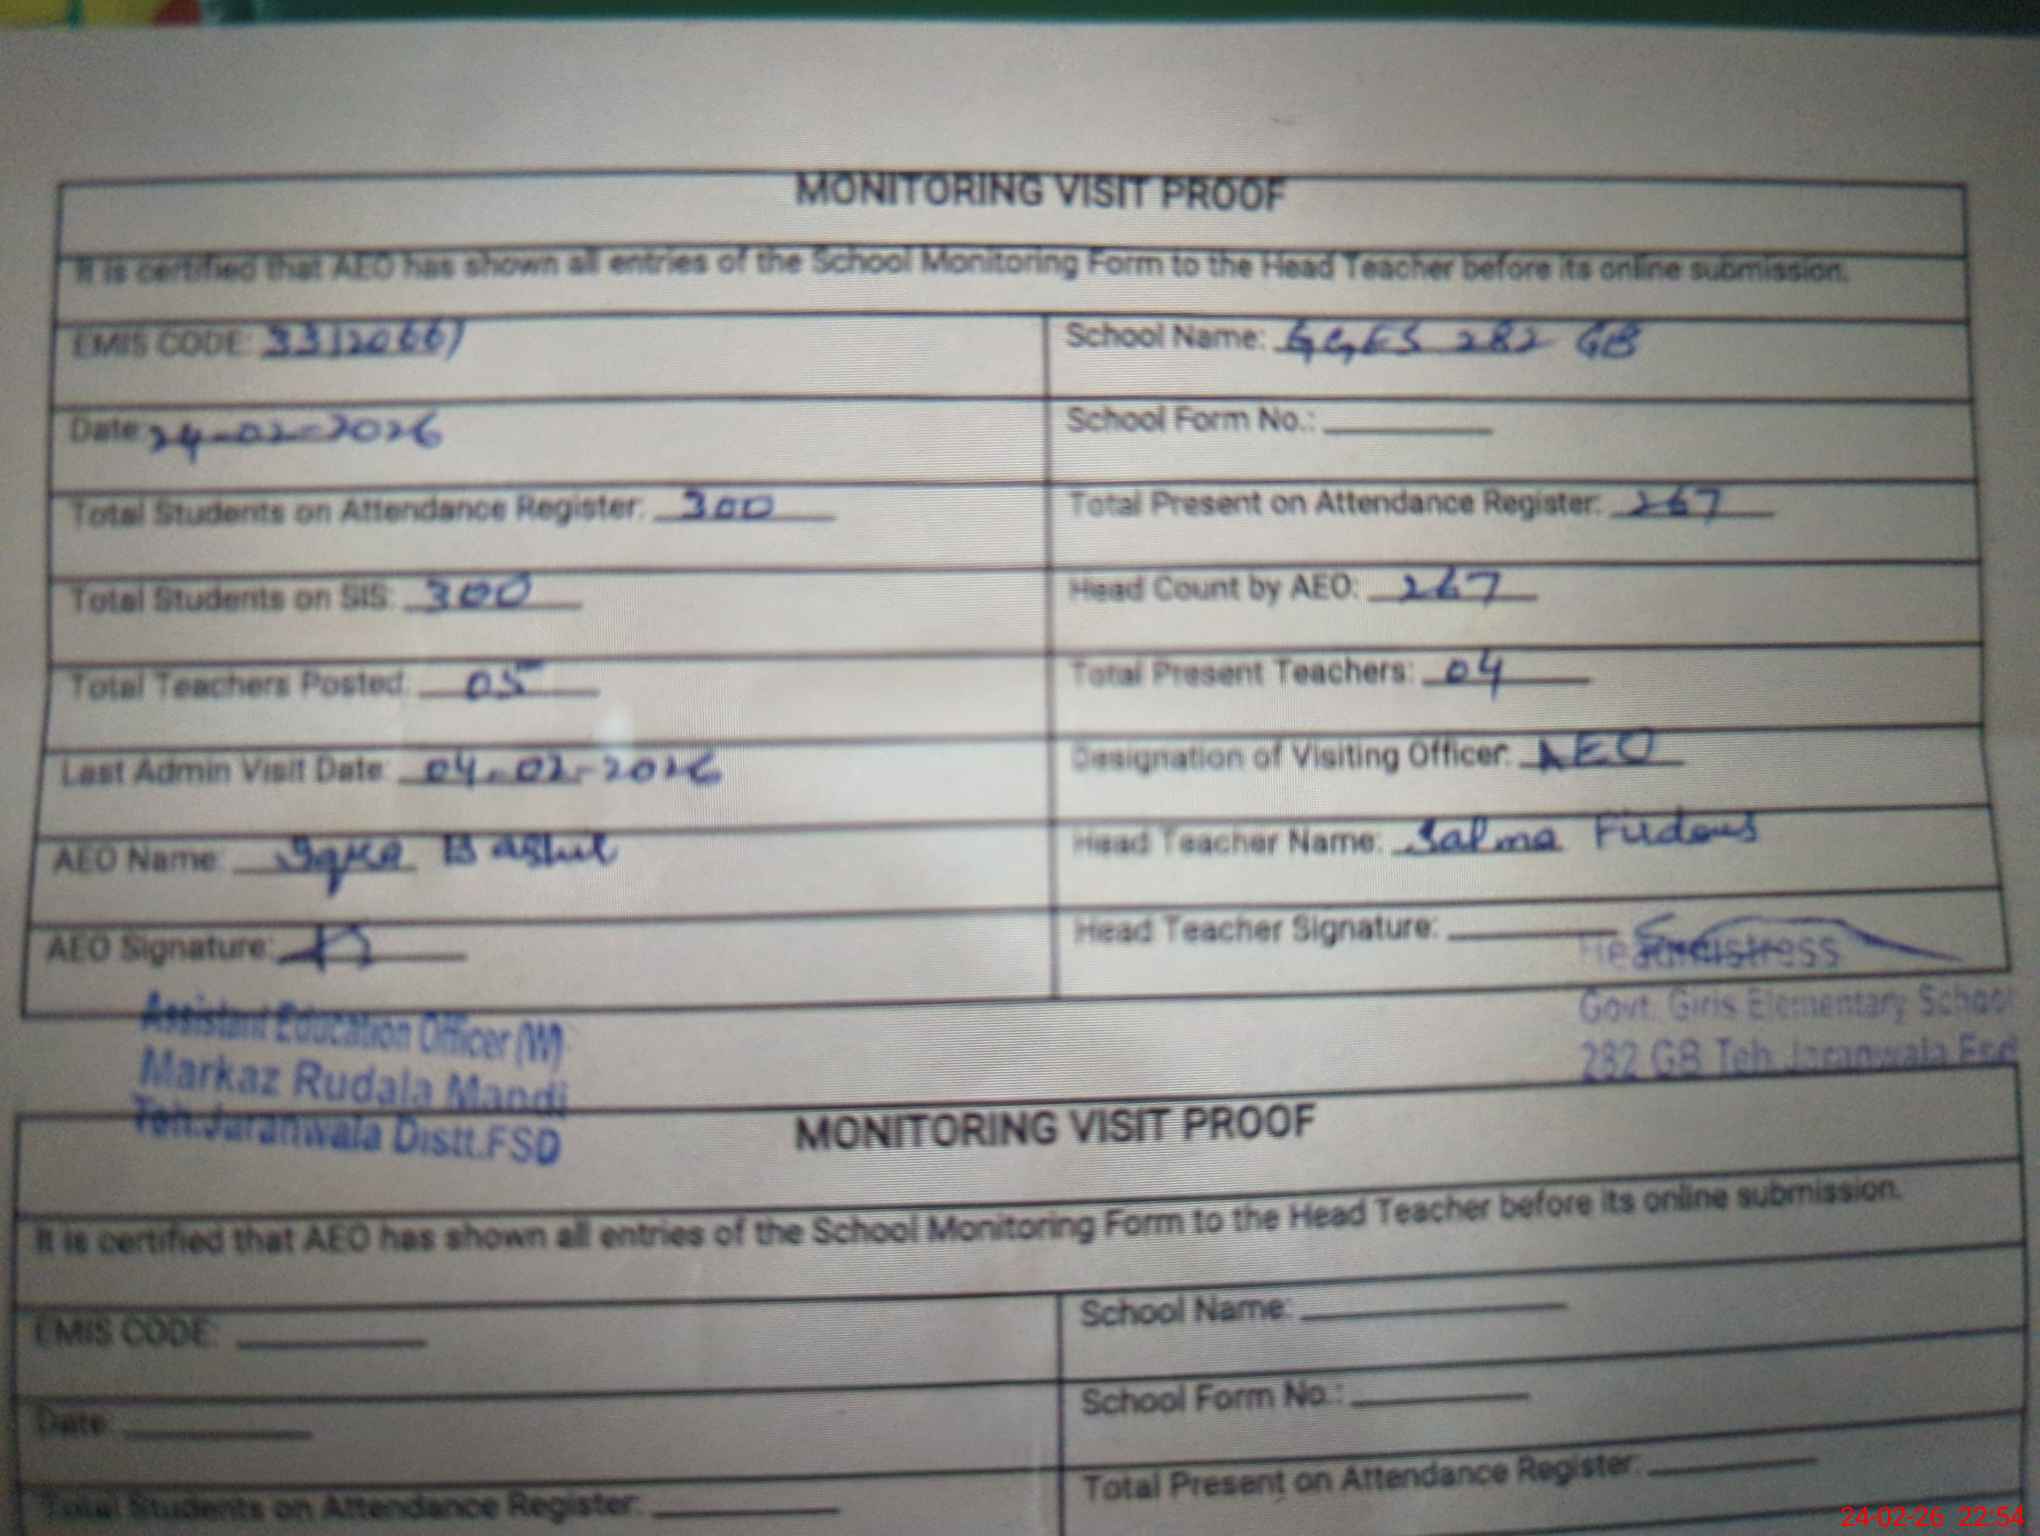 MONITORING VISIT PROOF
It is certified that AEO has shown all entries of the School Monitoring Form to the Head Teacher before its online submission.
EMIS CODE: 33120667 School Name: GGES 282 GB
Date: 24-02-2026 School Form No.:
Total Students on Attendance Register: 300 Total Present on Attendance Register: 267
Total Students on SIS: 300 Head Count by AEO: 267
Total Teachers Posted: 05 Total Present Teachers: 04
Last Admin Visit Date: 04-02-2026 Designation of Visiting Officer: AEO
AEO Name: Iqra Bashir Head Teacher Name: Salma Firdous
AEO Signature: Head Teacher Signature:
Headmistress
Assistant Education Officer (W) Govt. Girls Elementary School
Markaz Rudala Mandi 282 GB Teh. Jaranwala Fsd
Teh.Jaranwala Distt.FSD
MONITORING VISIT PROOF
It is certified that AEO has shown all entries of the School Monitoring Form to the Head Teacher before its online submission.
EMIS CODE: School Name:
Date: School Form No.:
Total Students on Attendance Register: Total Present on Attendance Register:
24-02-26 22:54